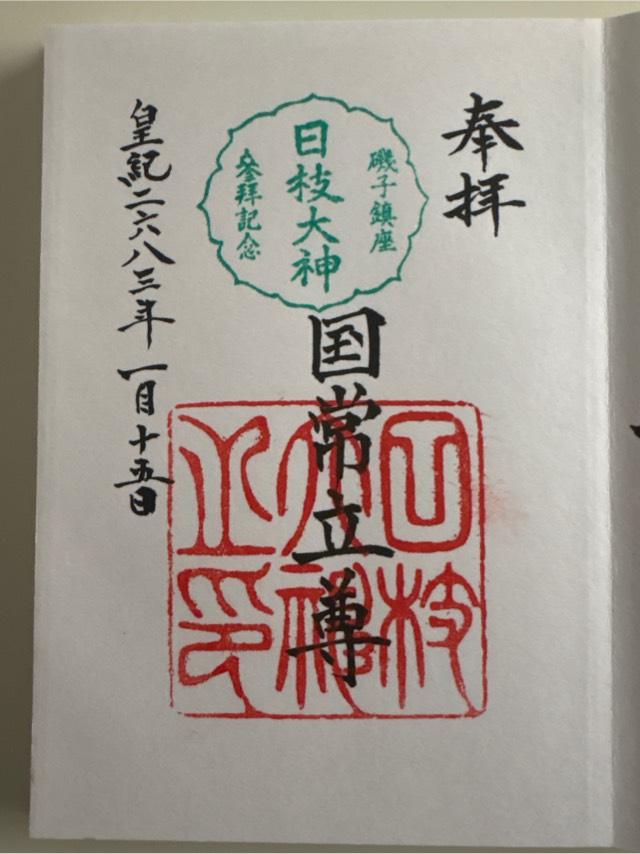 奉拝
磯子鎮座
日枝大神
参拝記念
国常立尊
日枝
大神
之印
皇紀二六八三年一月十五日